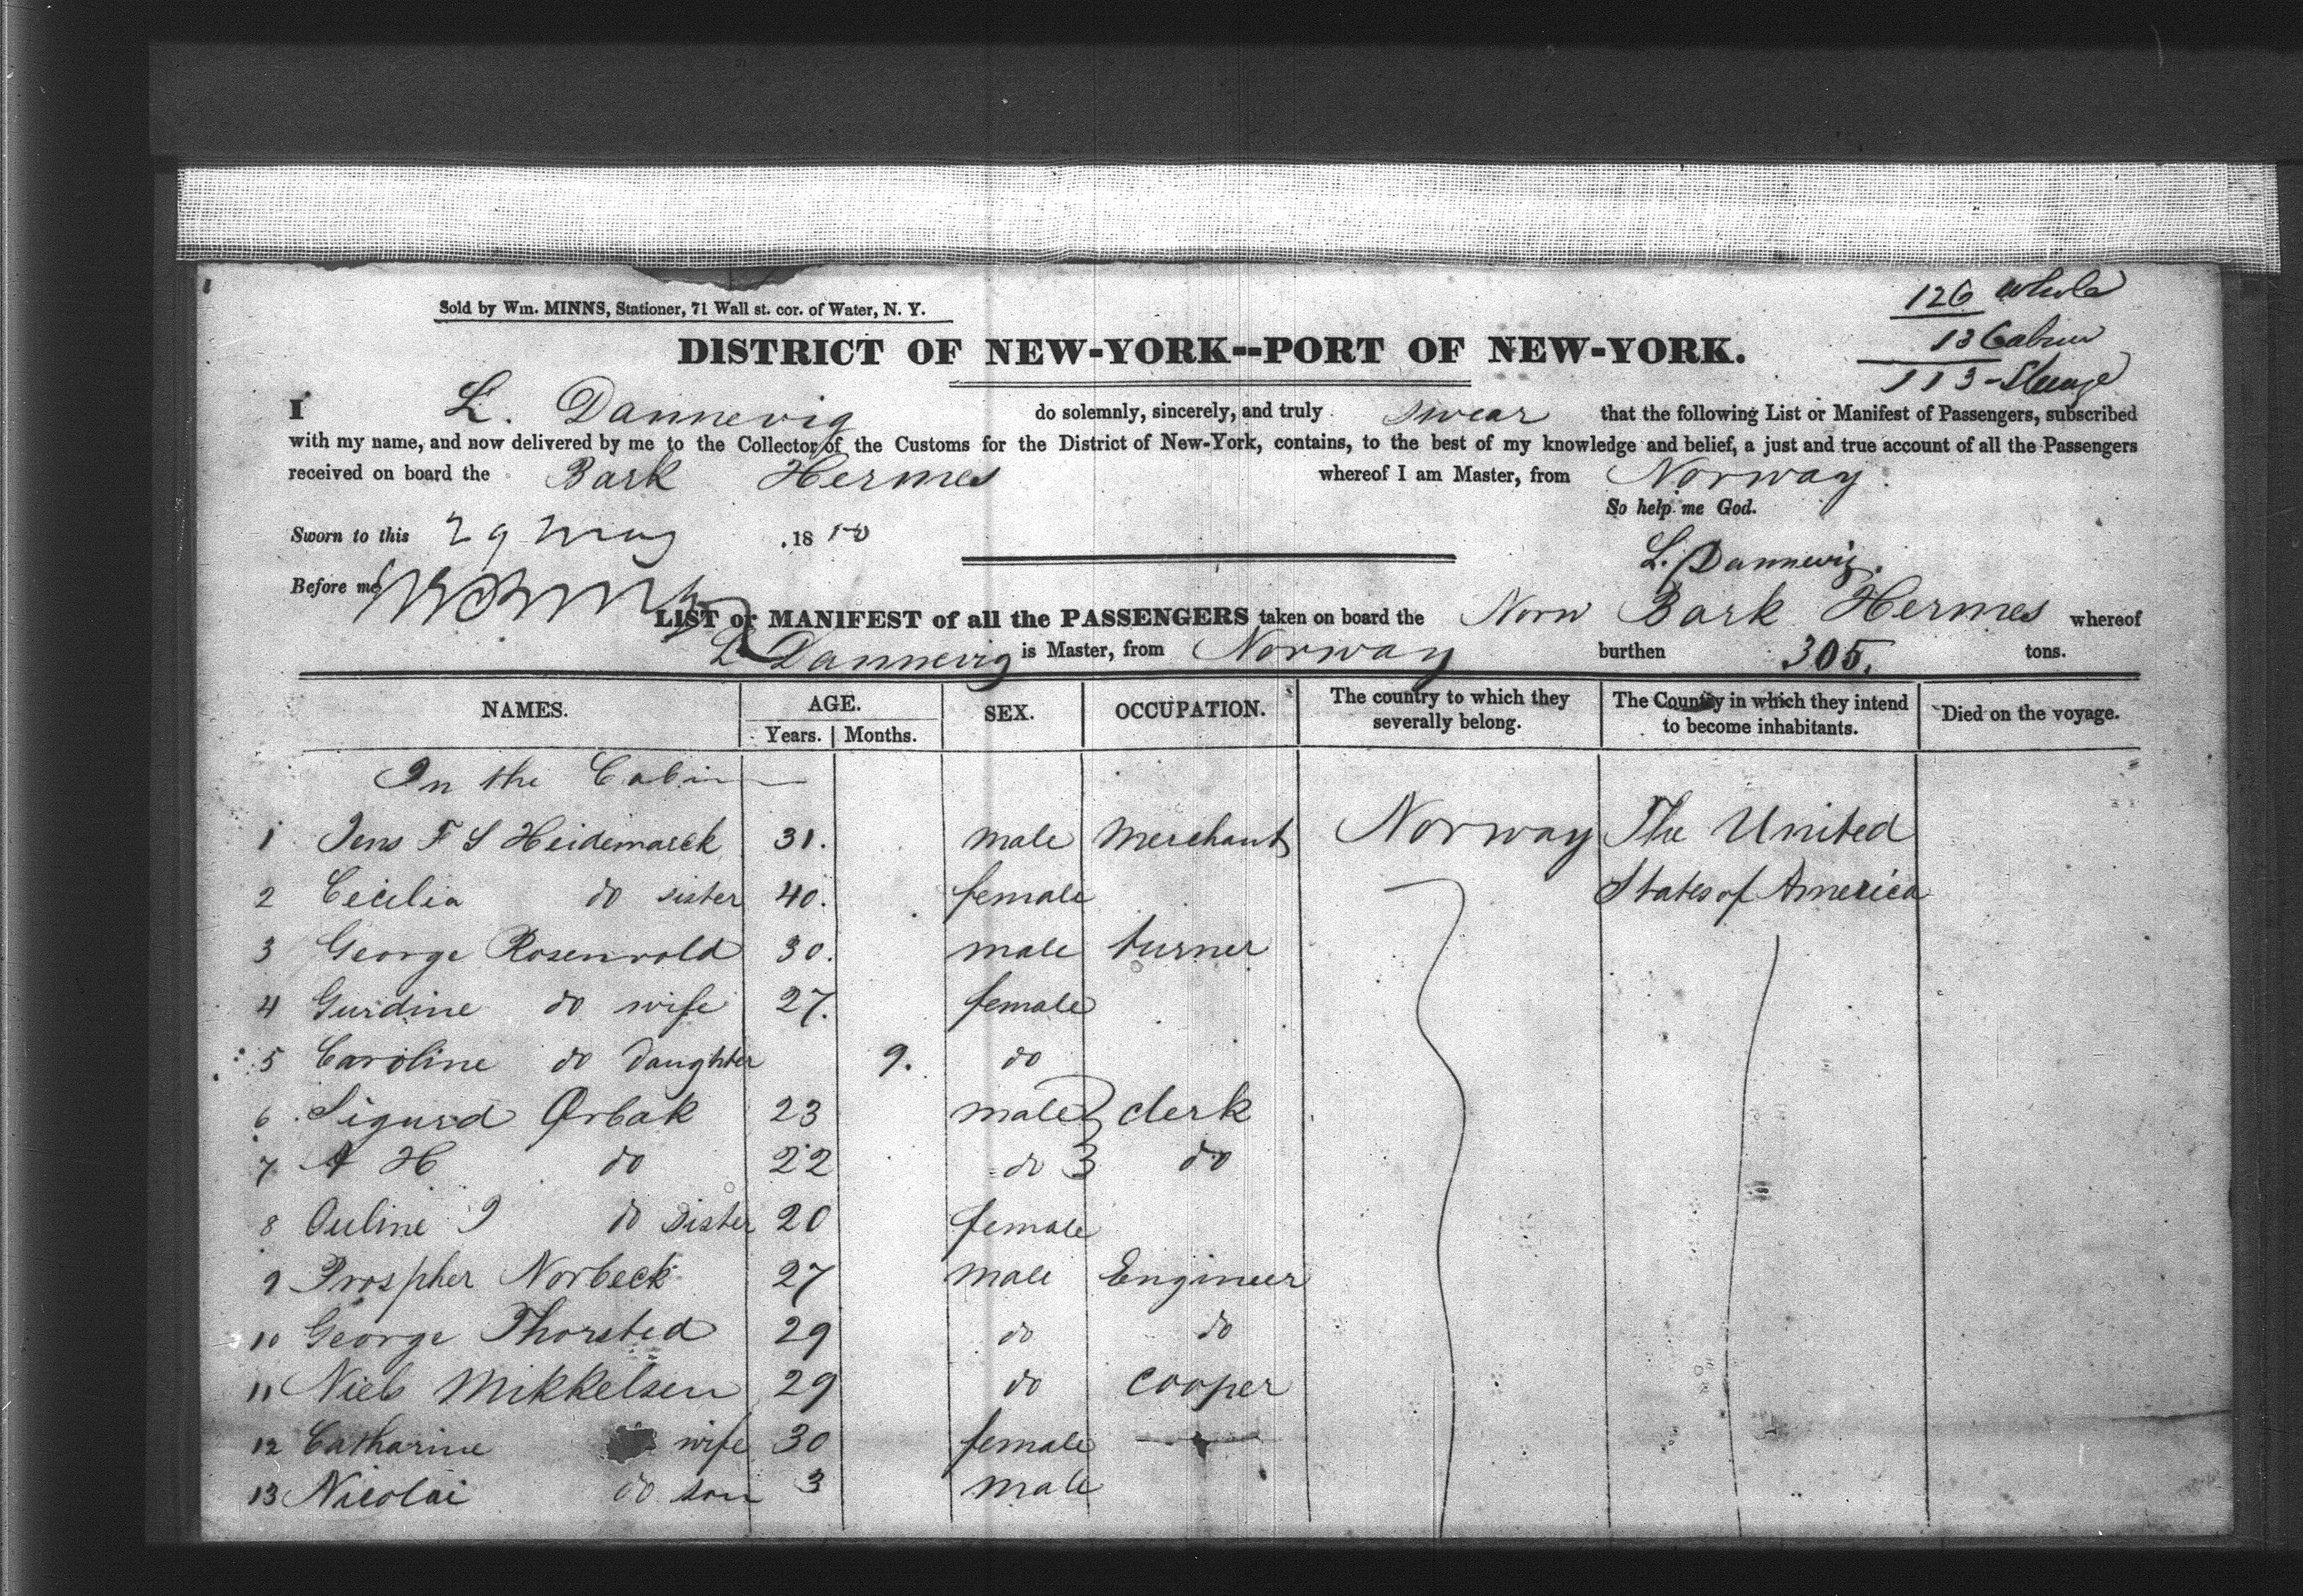 126 whole
13 Cabin
113 - Steerage
Sold by Wm. MINNS, Stationer, 71 Wall st. cor. of Water, N. Y.
DISTRICT OF NEW-YORK--PORT OF NEW-YORK.
I L. Dannevig do solemnly, sincerely, and truly swear that the following List or Manifest of Passengers, subscribed
with my name, and now delivered by me to the Collector of the Customs for the District of New-York, contains, to the best of my knowledge and belief, a just and true account of all the Passengers
received on board the Bark Hermes whereof I am Master, from Norway.
So help me God.
Sworn to this 29 May , 18
L. Dannevig.
Before me
LIST or MANIFEST of all the PASSENGERS taken on board the Norw Bark Hermes whereof
L Dannevig is Master, from Norway burthen 305. tons.
NAMES. AGE. Years. Months. SEX. OCCUPATION. The country to which they severally belong. The Country in which they intend to become inhabitants. Died on the voyage.
In the Cabin
1 Jens F S Heidemarck 31. male Merchant Norway The United
2 Cecilia do sister 40. female States of America
3 George Rosenvold 30. male turner
4 Gurdine do wife 27. female
5 Caroline do daughter 9. do
6 Sigurd Ørbak 23 male clerk
7 A H do 22 do do
8 Ouline I do sister 20 female
9 Prospher Norbeck 27 male Engineer
10 George Thorsted 29 do do
11 Niels Mikkelsen 29 do cooper
12 Catharine wife 30 female
13 Nicolai do son 3 male